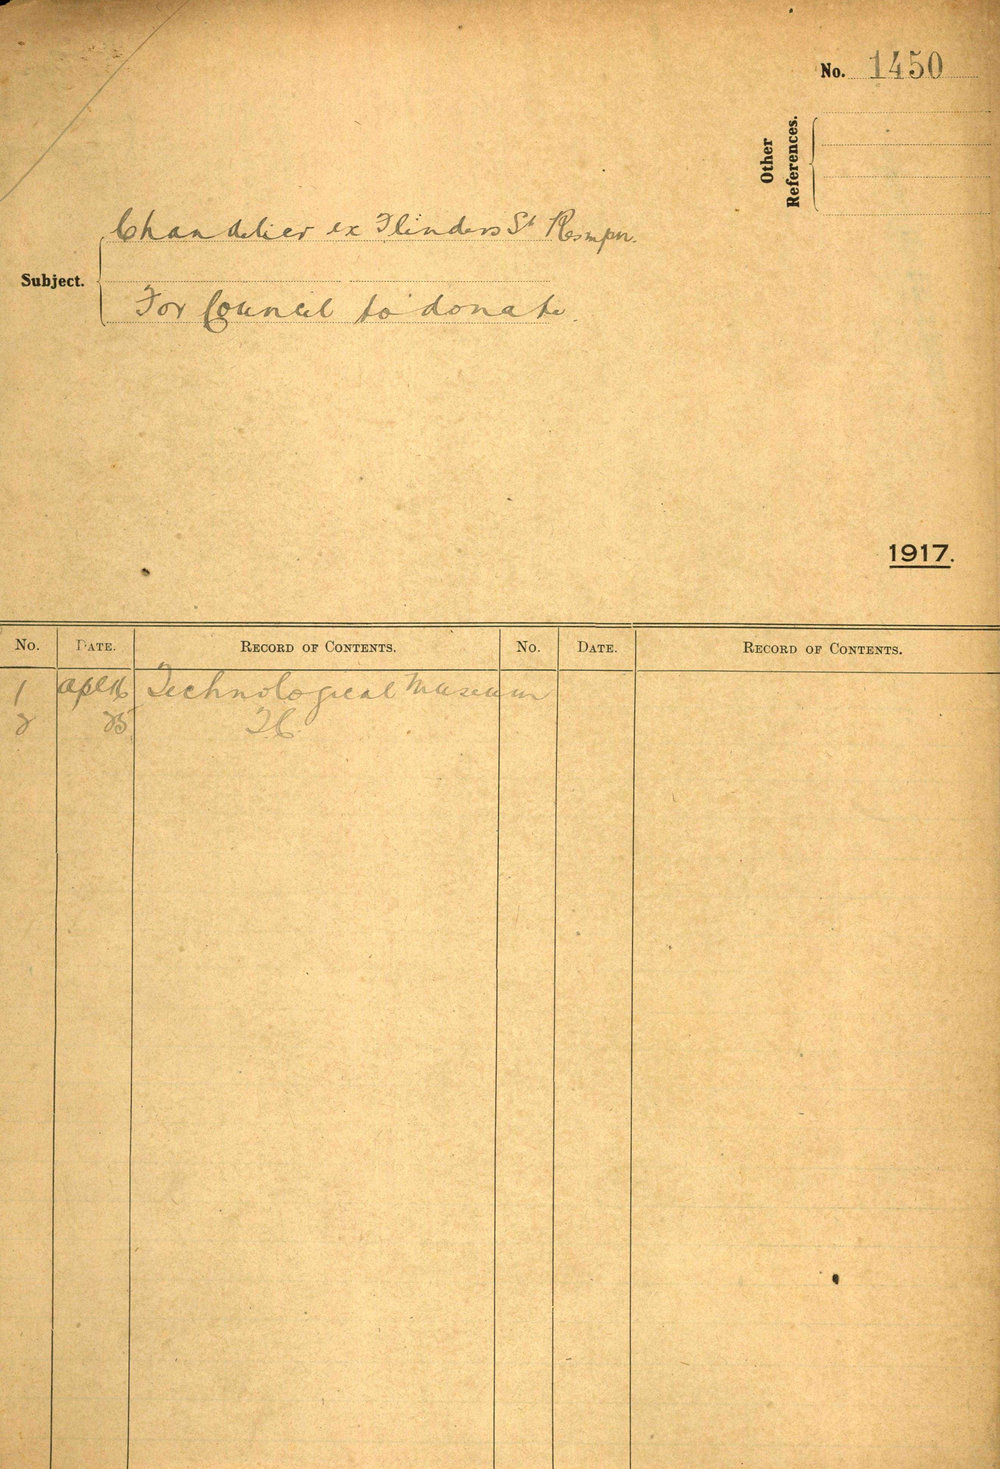 No. 1450
Other References.
Chandelier ex Flinders St Resmpn.
Subject.
For Council to donate.
1917.
No. DATE. RECORD OF CONTENTS. No. DATE. RECORD OF CONTENTS.
1 apl 16 Technological Museum
2 25